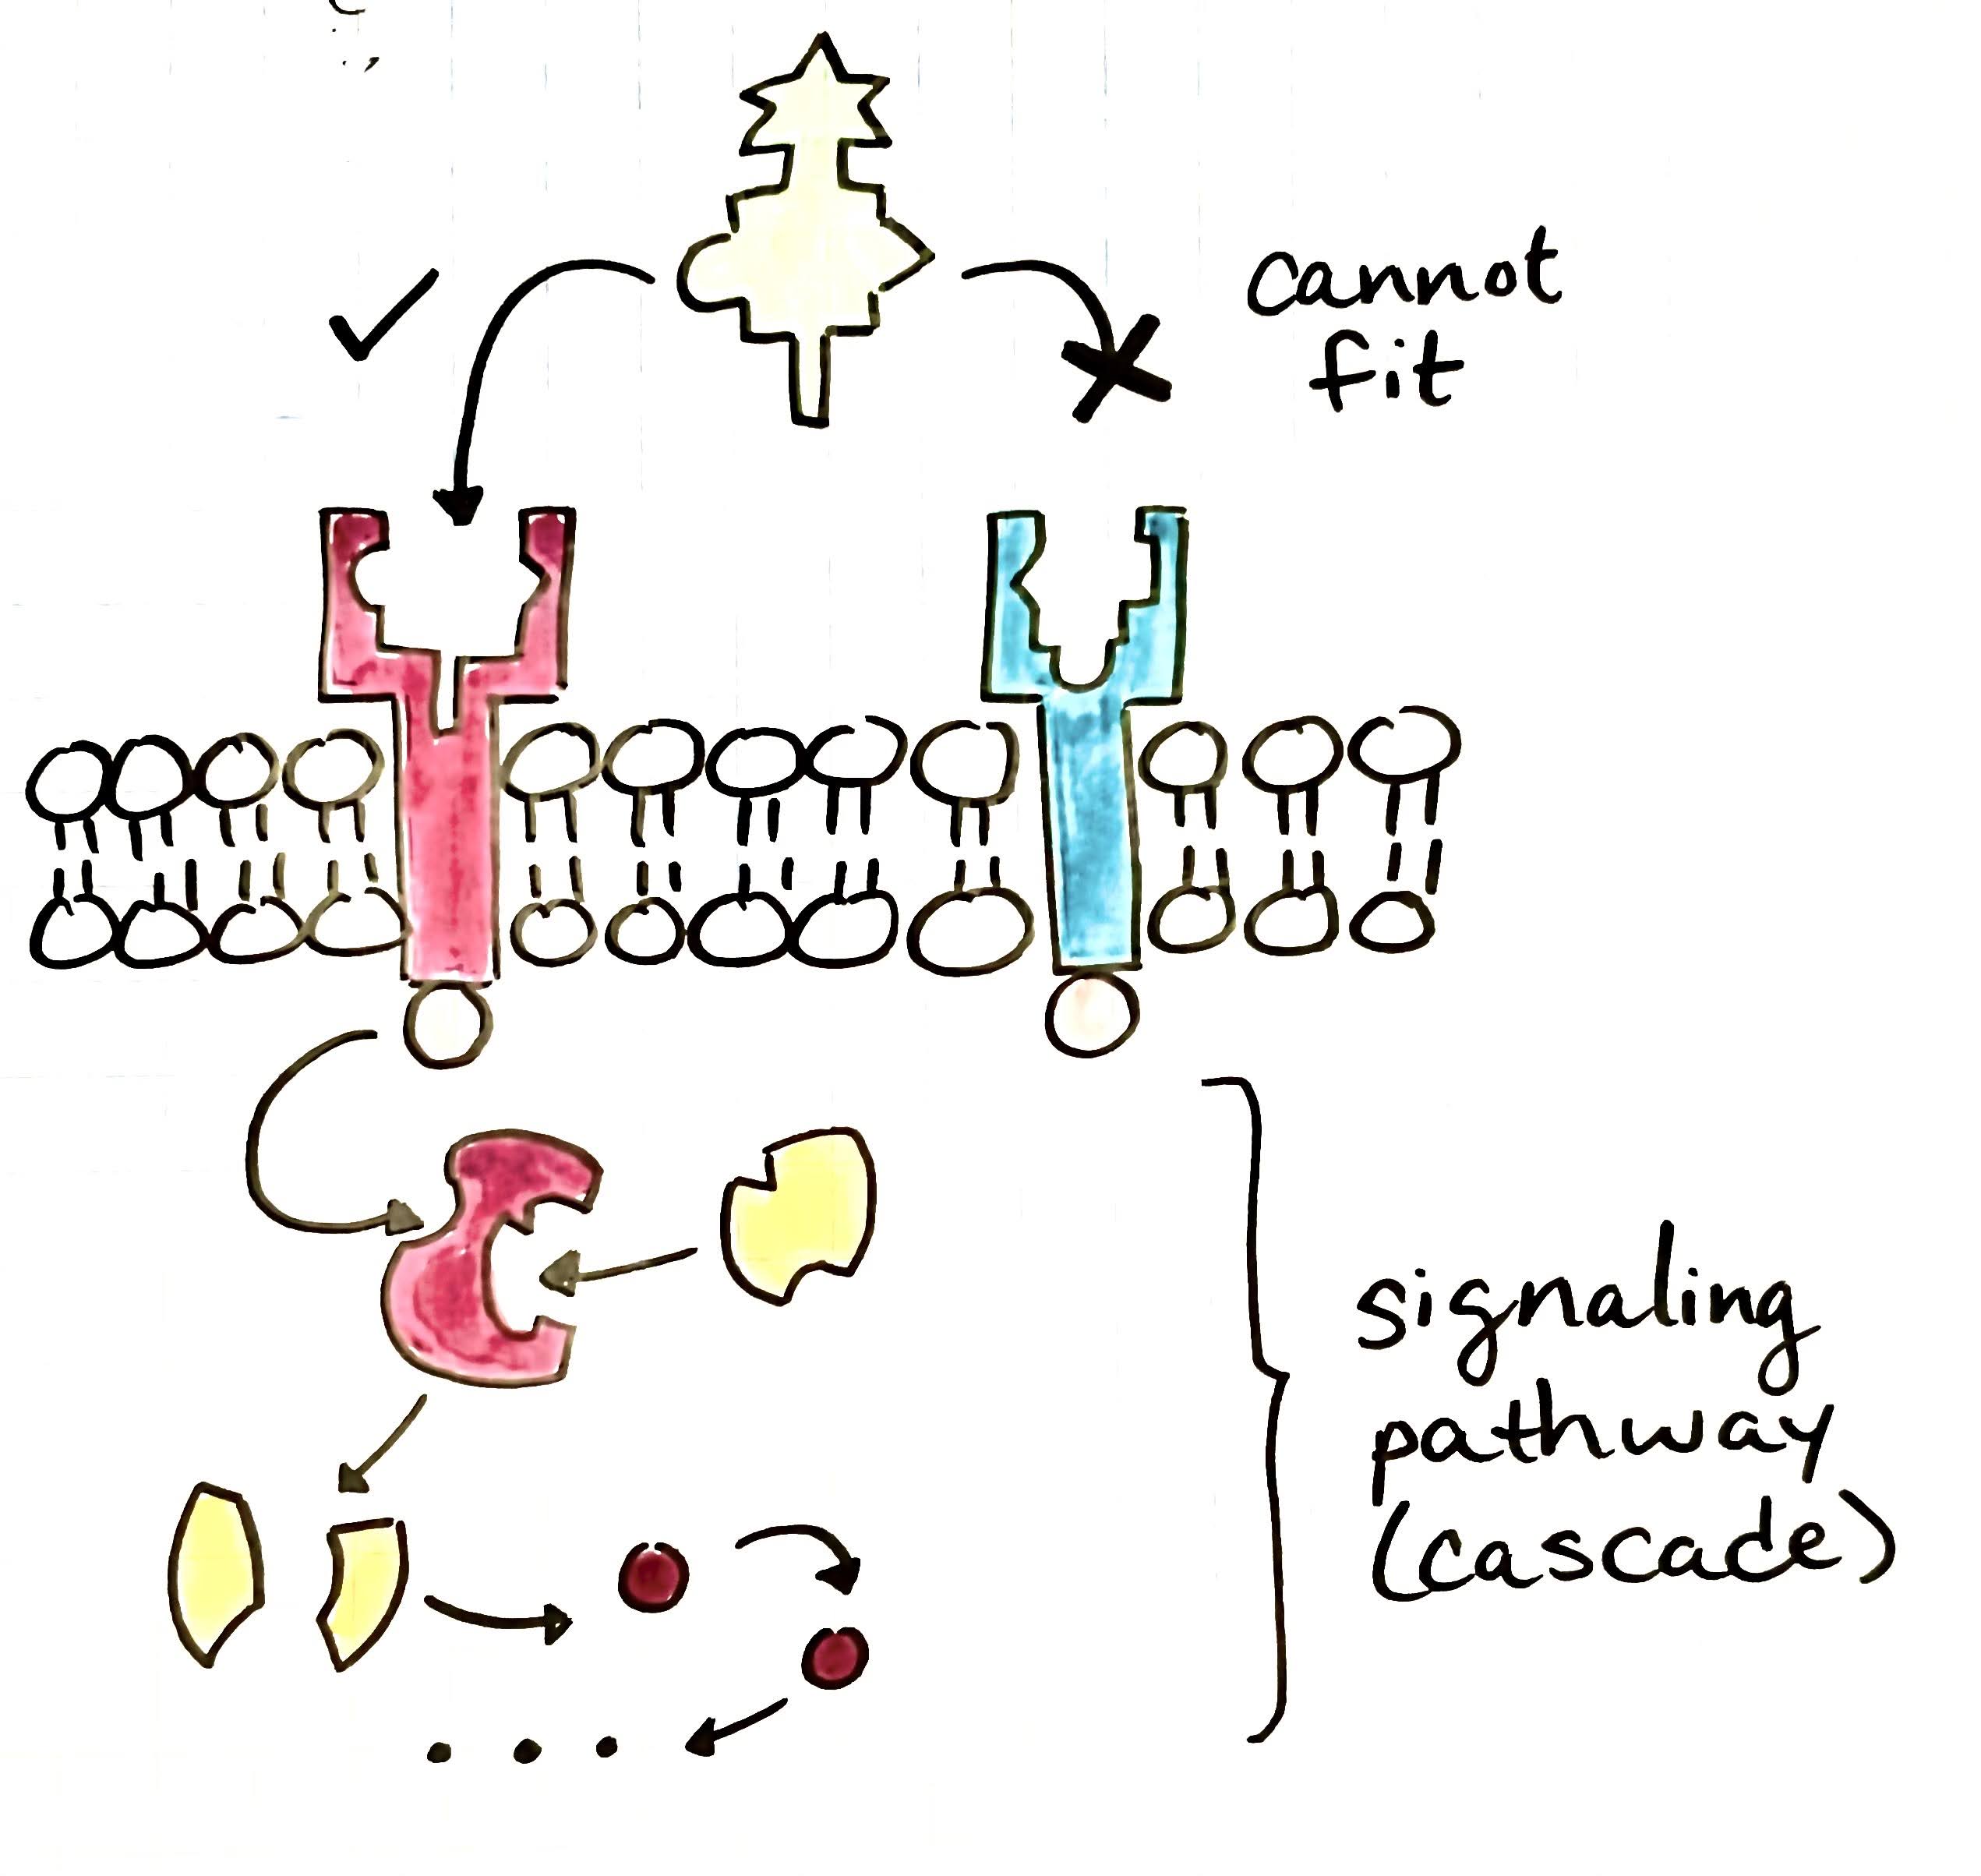 cannot
fit
signaling
pathway
(cascade)